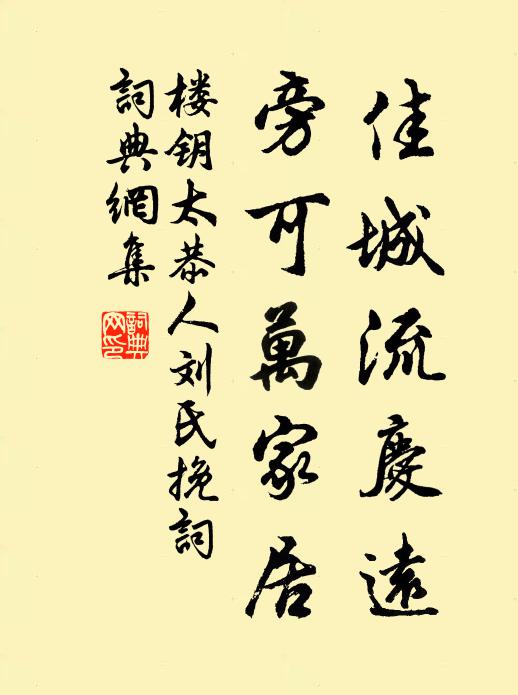 佳城流慶遠
旁可萬家居
楼钥太恭人刘氏挽詞
詞典網集
詞典网印